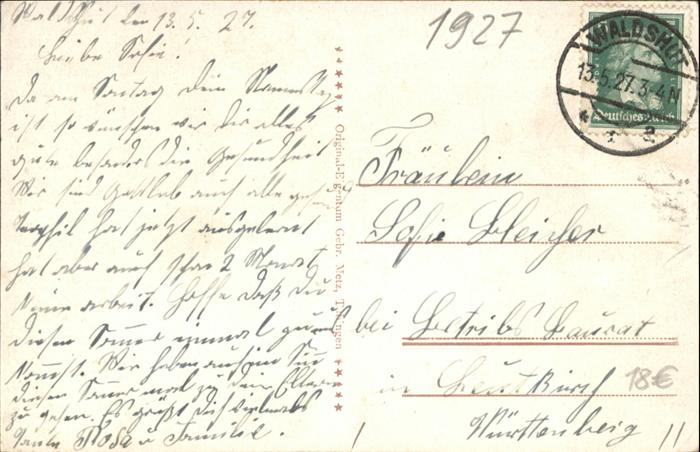 Waldshut den 13.5.27.
Liebe Sofie!
Da am Sontag dein Namenstag
ist so wünschen wir dir alles
gute besonders die Gesundheit
Wir sind Gottlob auch alle gesund
hat jetzt ausgelernt
hat aber auch schon 2 Monat
keine arbeit. Hoffe daß du
diesen Sommer einmal zu uns
kommst. Wir haben auch im Sinn
diesen Sommer mal zu den Eltern
zu gehen. Es grüßt dich vielmals
Tante Rosa u Familie.
Original-Eigentum Gebr. Metz, Tübingen
1927
WALDSHUT
13.5.27.3-4N
Deutsches Reich
Fräulein
Sofie Bleicher
bei Betriebs Baurat
in Leutkirch
18€
Württenberg